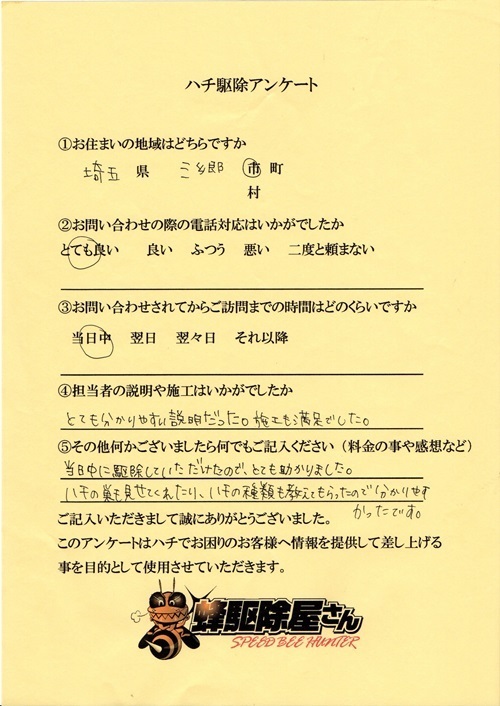 ハチ駆除アンケート
①お住まいの地域はどちらですか
埼玉 県 三郷 市 町
村
②お問い合わせの際の電話対応はいかがでしたか
とても良い 良い ふつう 悪い 二度と頼まない
③お問い合わせされてからご訪問までの時間はどのくらいですか
当日中 翌日 翌々日 それ以降
④担当者の説明や施工はいかがでしたか
とても分かりやすい説明だった。施工も満足でした。
⑤その他何かございましたら何でもご記入ください(料金の事や感想など)
当日中に駆除していただけたので、とても助かりました。
ハチの巣も見せてくれたり、ハチの種類も教えてもらったので分かりやす
かったです。
ご記入いただきまして誠にありがとうございました。
このアンケートはハチでお困りのお客様へ情報を提供して差し上げる
事を目的として使用させていただきます。
蜂駆除屋さん
SPEED BEE HUNTER